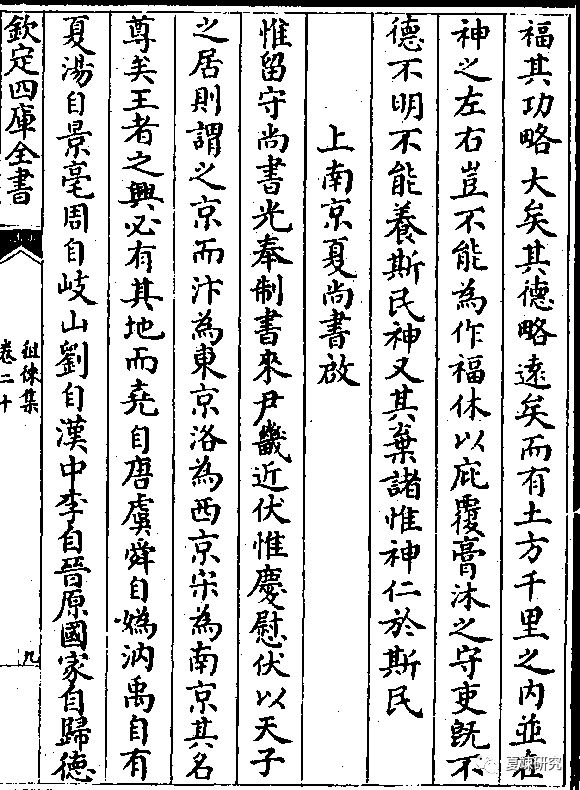 福其功略大矣其德略遠矣而有土方千里之内並在
神之左右豈不能為作福休以庇覆膏沐之守吏既不
德不明不能養斯民神又其棄諸惟神仁於斯民
上南京夏尚書啟
惟留守尚書光奉制書來尹畿近伏惟慶慰伏以天子
之居則謂之京而汴為東京洛為西京宋為南京其名
尊矣王者之興必有其地而堯自唐虞舜自媯汭禹自有
夏湯自景亳周自岐山劉自漢中李自晉原國家自歸德
欽定四庫全書
徂徠集
卷二十
九
夏竦研究